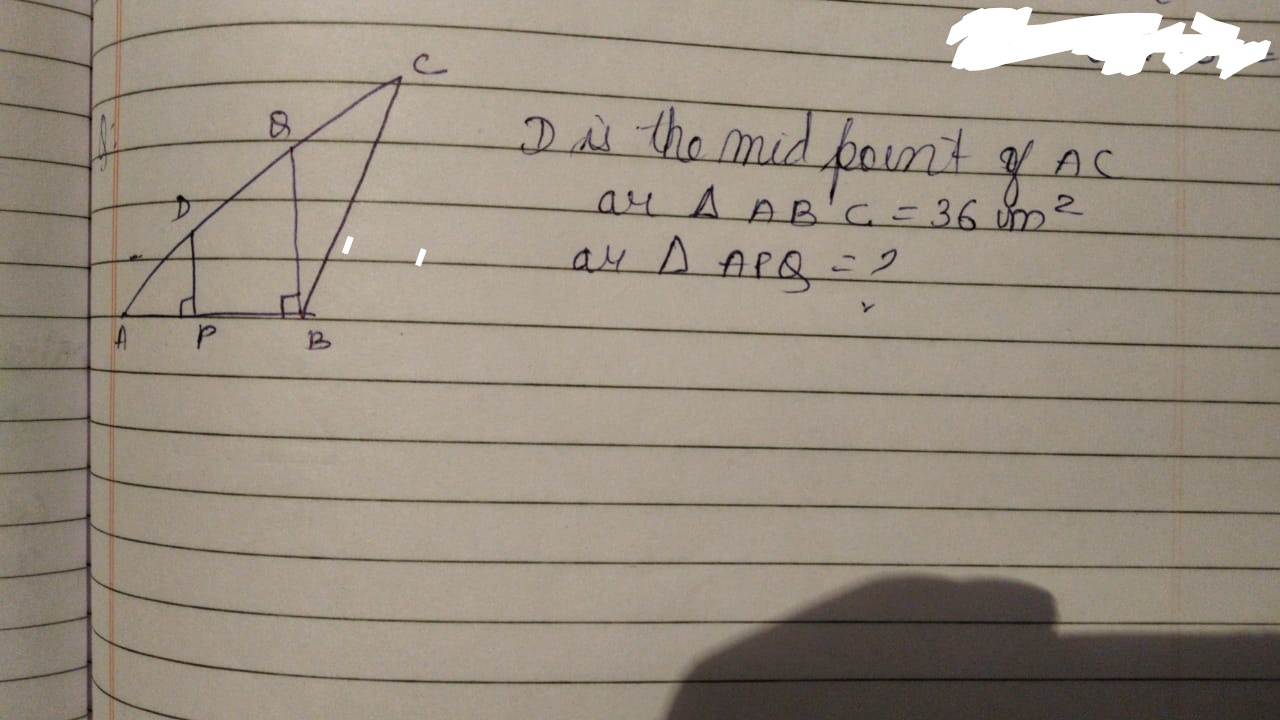 C
Q
D
A P B
D is the mid point of AC
ar Δ ABC = 36 cm²
ar Δ APQ = ?